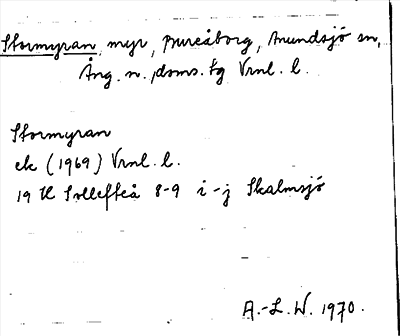 Stormyran, myr, Mureåborg, Anundsjö sn,
Ång. n. doms. tg Vrnl. l.
Stormyran
ek (1969) Vrnl. l.
19 H Sollefteå 8-9 i-j Skalmsjö
A.-L. W. 1970.